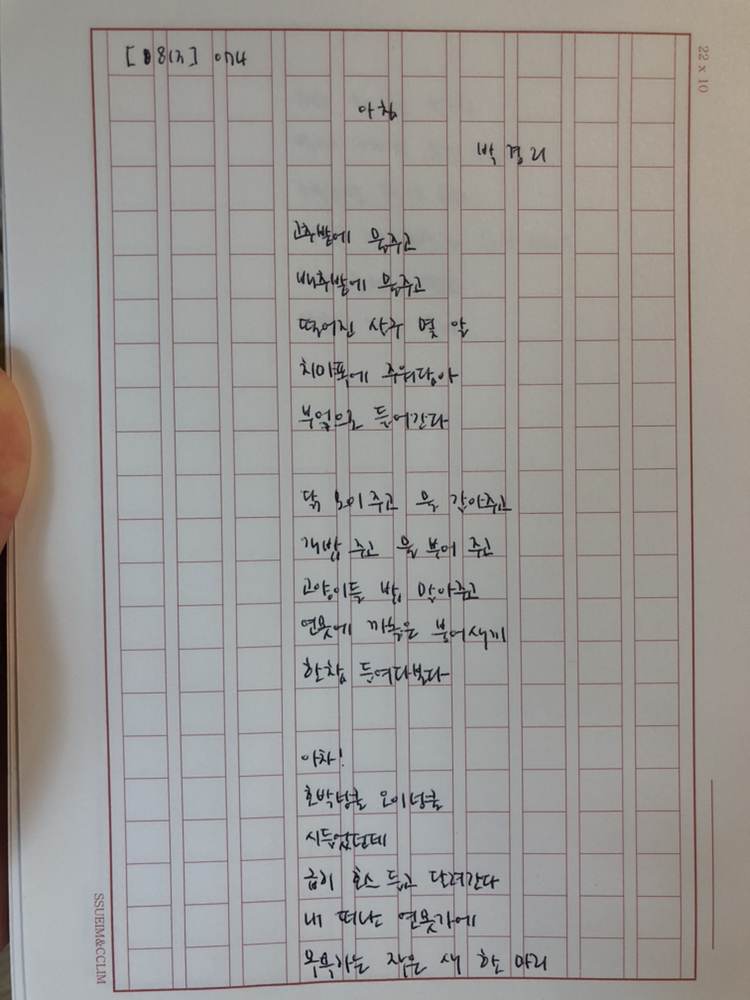 [0813] 074
22 x 10
아침
박경리
고추밭에 물주고
배추밭에 물주고
떨어진 살구 몇 알
치마폭에 주워담아
부엌으로 들어간다
닭 모이 주고 물 갈아주고
개밥 주고 물 부어 주고
고양이들 밥 말아주고
연못에 까놓은 붕어새끼
한참 들여다보다
아차!
호박넝쿨 오이넝쿨
시들었던데
급히 호스 들고 달려간다
내 떠난 연못가에
목욕하는 작은 새 한 마리
SSUEIM&CCLIM